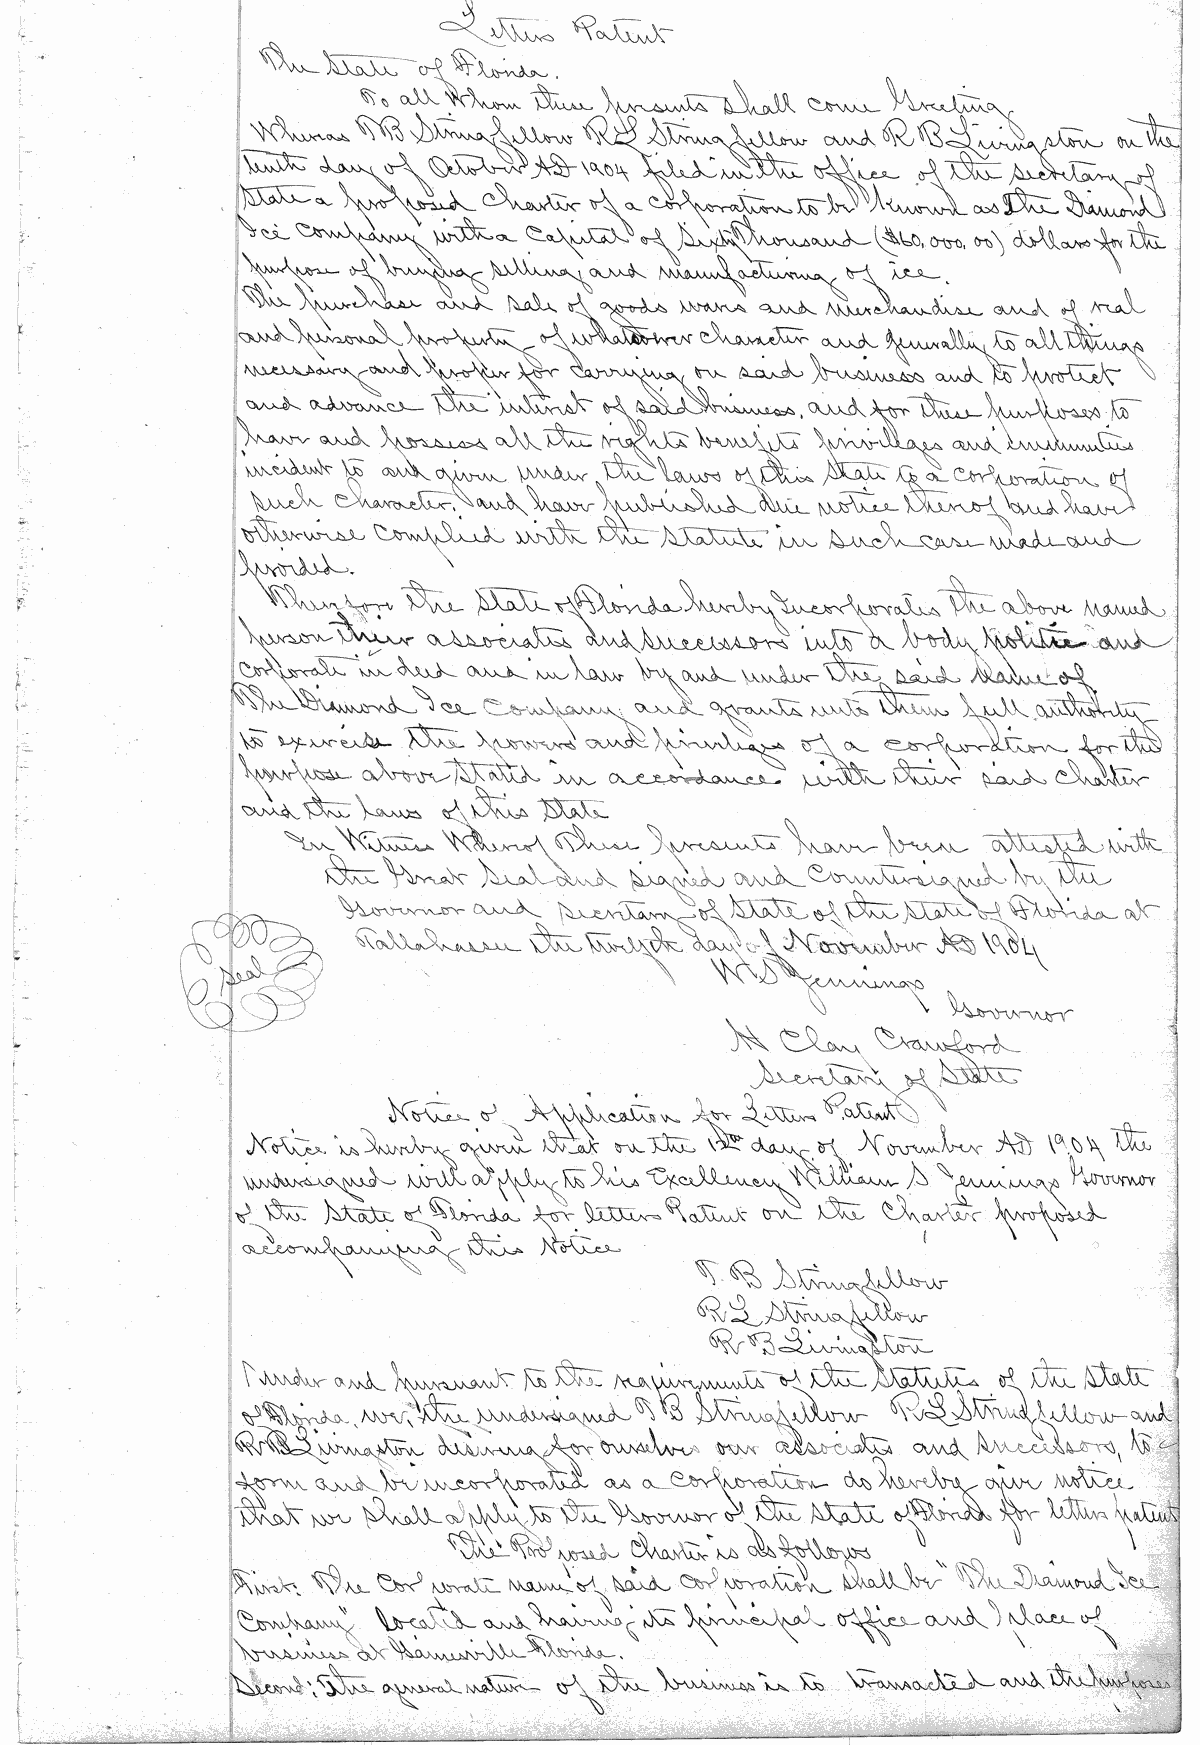 Letters Patent
The State of Florida.
To all Whom these presents shall come Greeting
Whereas T B Stringfellow R L Stringfellow and R B Livingston on the
tenth day of October AD 1904 filed in the office of the secretary of
State a proposed Charter of a corporation to be known as The Diamond
Ice Company with a Capital of Sixty Thousand ($60,000,00) dollars for the
purpose of buying selling and manufacturing of ice.
The purchase and sale of goods wares and merchandise and of real
and personal property of whatsoever character and generally to all things
necessary and proper for carrying on said business and to protect
and advance the interest of said business, and for these purposes to
have and possess all the rights benefits privileges and immunities
incident to and given under the laws of this State to a corporation of
such character, and have published due notice thereof and have
otherwise complied with the Statute in such case made and
provided.
Wherefore the State of Florida hereby Incorporates the above named
person their associates and successors into a body politic and
corporate in deed and in law by and under the said Name of
The Diamond Ice Company, and grants unto them full authority
to exercise the powers and privileges of a corporation for the
purpose above stated in accordance with their said charter
and the laws of this State
In Witness Whereof These presents have been attested with
the Great Seal and signed and Countersigned by the
Governor and Secretary of State of the State of Florida at
Tallahassee the twelfth day of November AD 1904
Seal
W S Jennings
Governor
H Clay Crawford
Secretary of State
Notice of Application for Letters Patent
Notice is hereby given that on the 12th day of November AD 1904 the
undersigned will apply to his Excellency William S Jennings Governor
of the State of Florida for letters Patent on the Charter proposed
accompanying this Notice
T. B Stringfellow
R L Stringfellow
R B Livingston
Under and pursuant to the requirements of the Statutes of the State
of Florida, we, the undersigned T B Stringfellow R L Stringfellow and
R B Livingston desiring for ourselves our associates and successors, to
form and be incorporated as a corporation do hereby give notice
that we shall apply to the Govenor of the State of Florida for letters patent
The Proposed Charter is as follows
First: The Corporate name of said corporation shall be "The Diamond Ice
Company" located and having its principal office and place of
business at Gainesville Florida.
Second: The general nature of the business is to transacted and the purposes